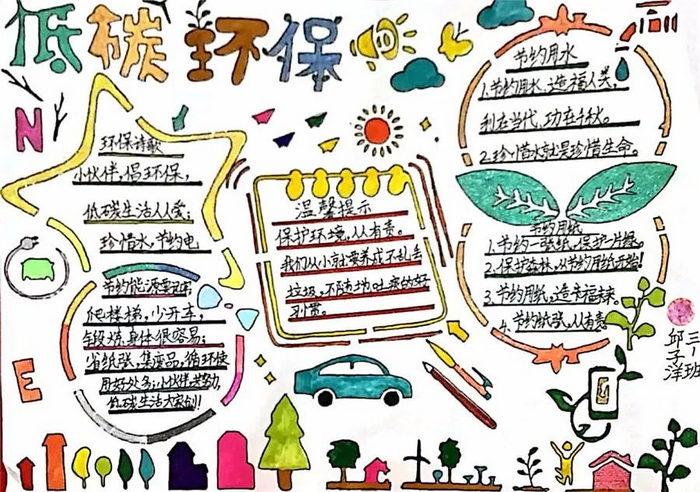 低碳环保
N
环保诗歌
小伙伴,倡环保,
低碳生活人人爱;
珍惜水,节约电
爬楼梯,少开车,
省纸张,集废品,循环使
低碳生活大家创!
E
温馨提示
保护环境,从有责。
我们从小就要养成不乱丢
垃圾,不随地吐痰的好
习惯。
节约用水
1.节约用水,造福人类,
利在当代,功在千秋。
2.珍惜水就是珍惜生命。
节约用纸
1.节约一张纸,保护一片绿。
2.保护森林,从节约用纸开始!
3.节约用纸,造幸福
4.节约纸张,人有责
三
邱子洋
班